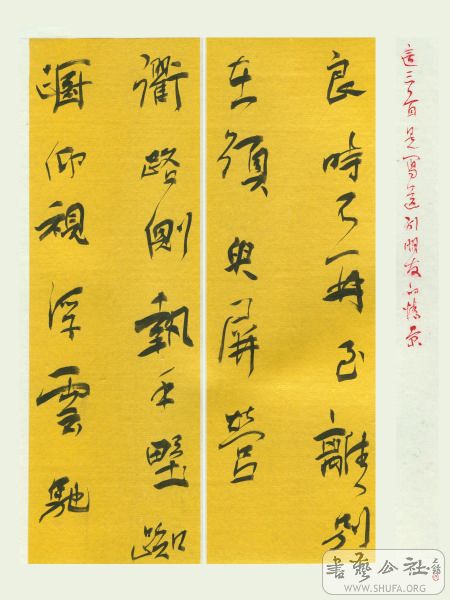 這三首是寫送別朋友的情景
良時不再至離別
在須臾屏營
衢路側執手野踟
躕仰視浮雲馳
書藝公社
WWW.SHUFA.ORG